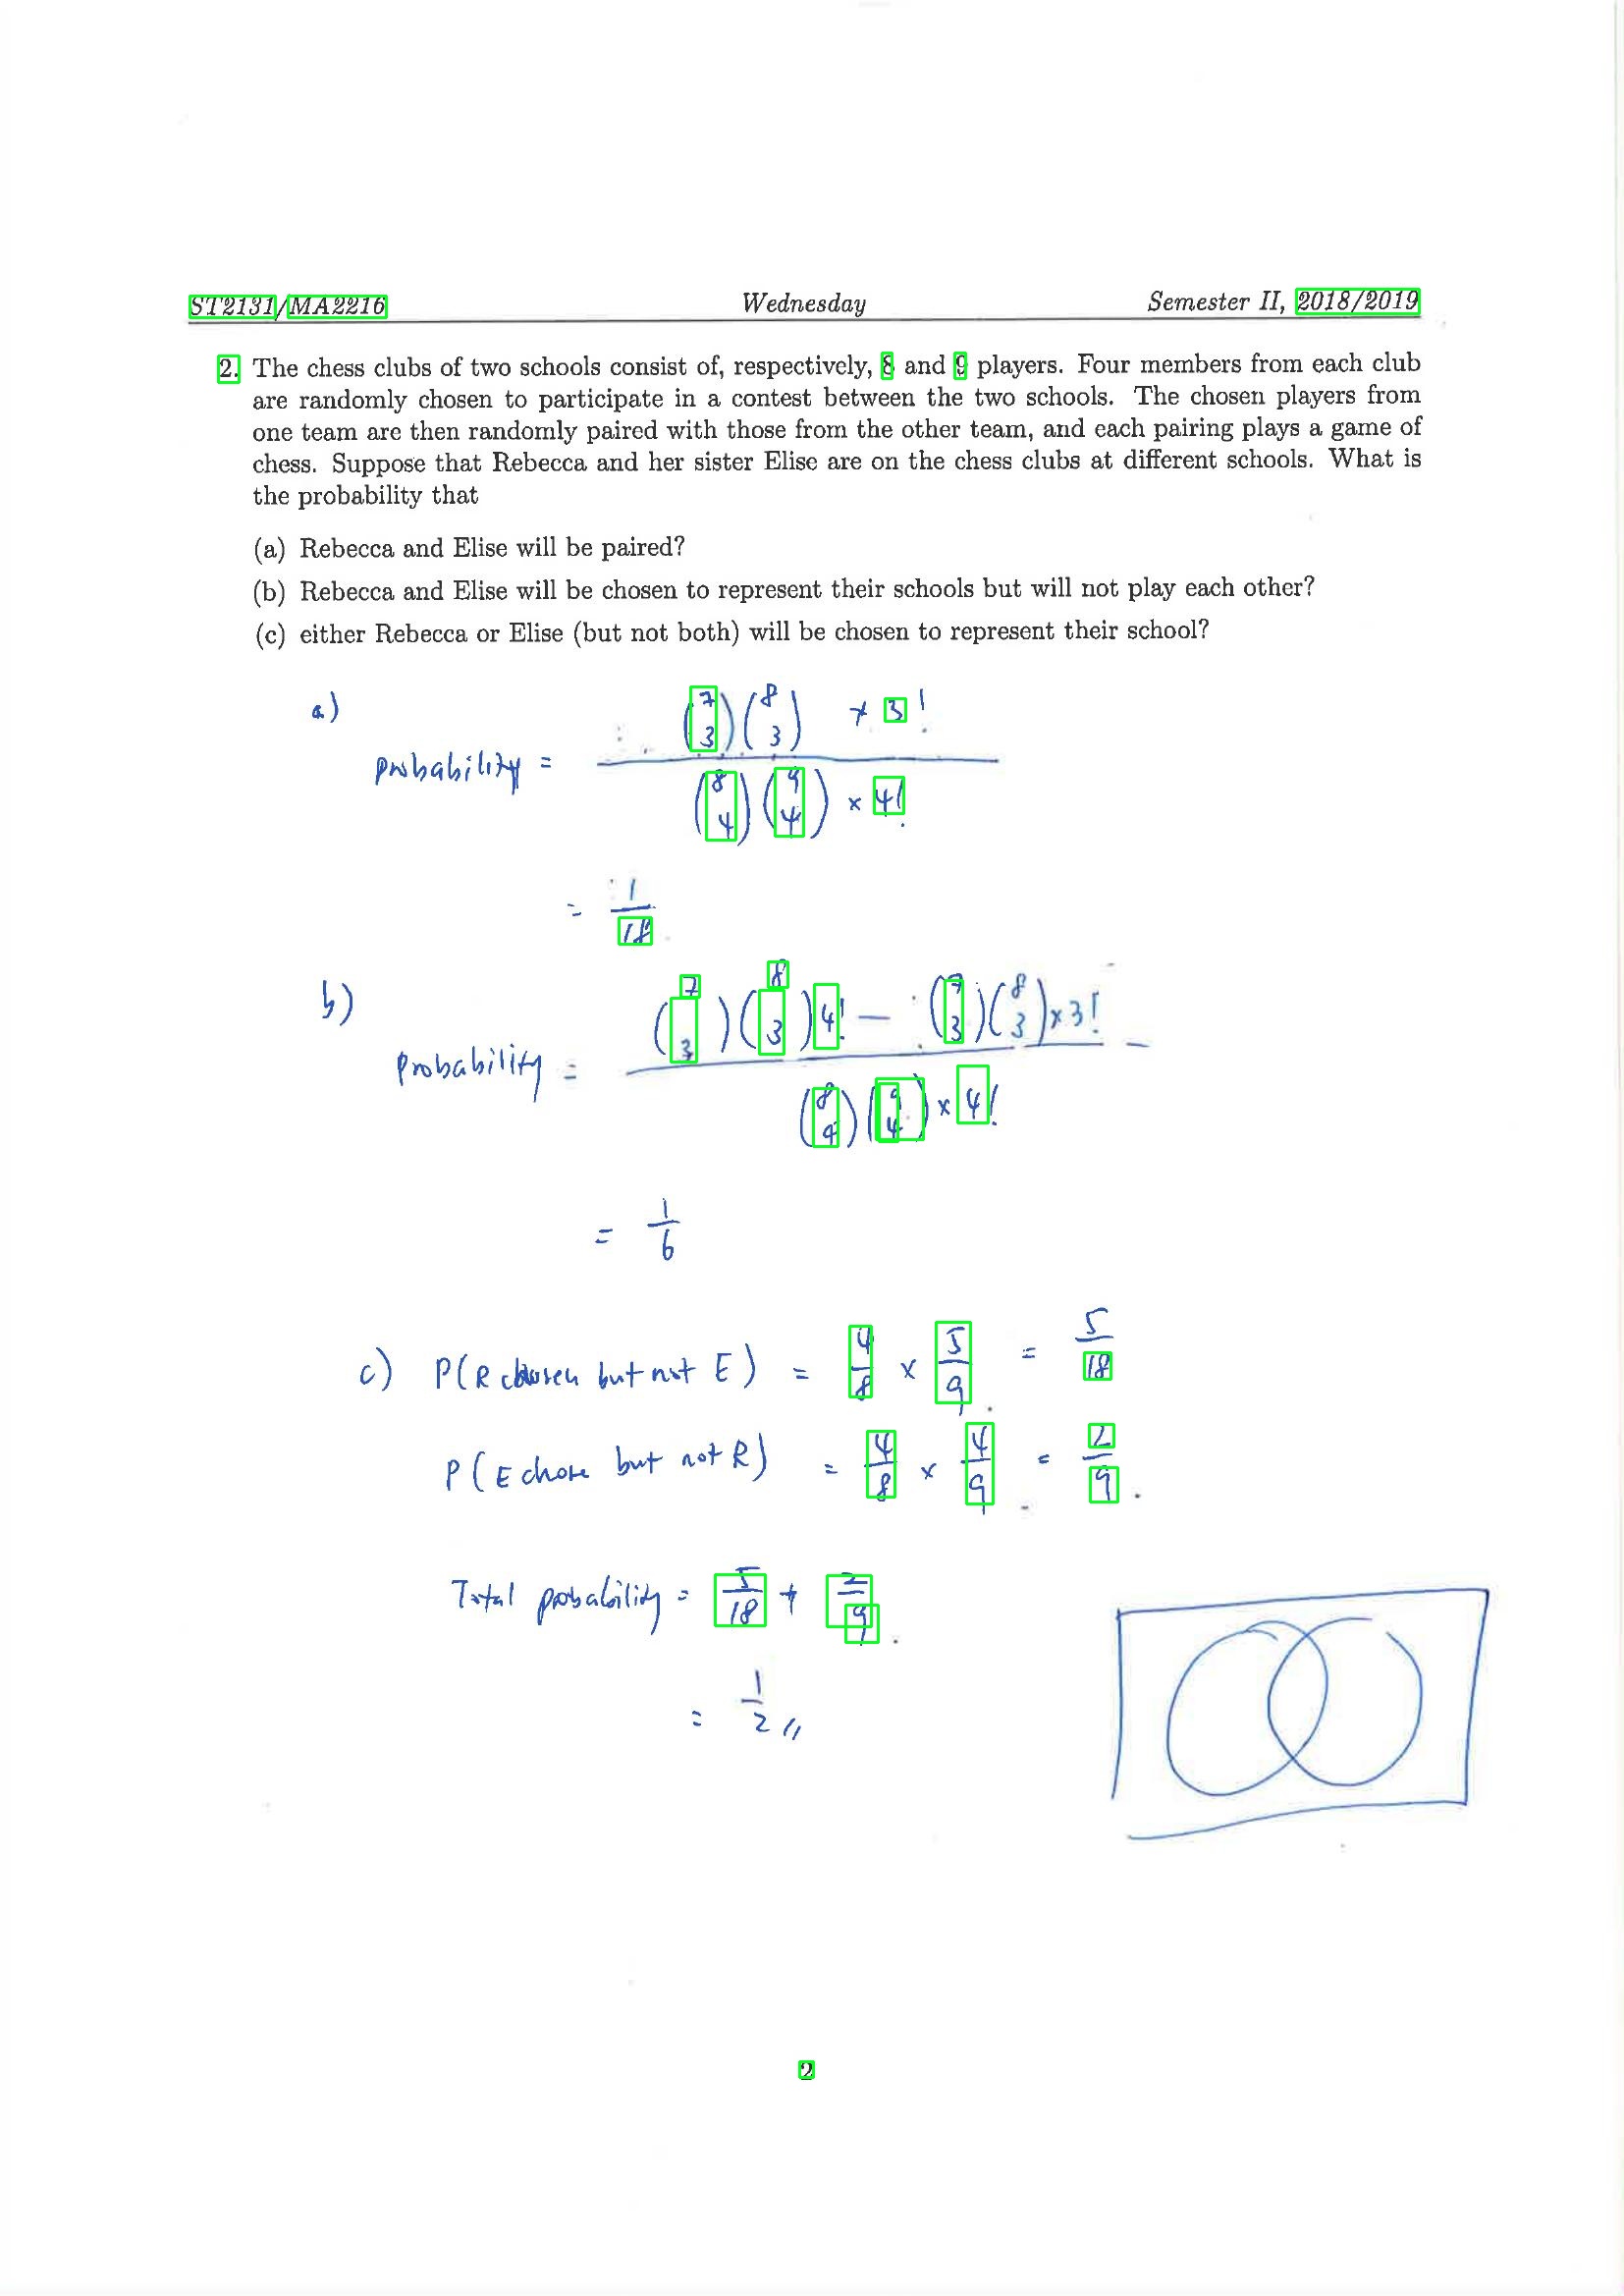 ST2131/MA2216 Wednesday Semester II, 2018/2019
2. The chess clubs of two schools consist of, respectively, 8 and 9 players. Four members from each club
are randomly chosen to participate in a contest between the two schools. The chosen players from
one team are then randomly paired with those from the other team, and each pairing plays a game of
chess. Suppose that Rebecca and her sister Elise are on the chess clubs at different schools. What is
the probability that
(a) Rebecca and Elise will be paired?
(b) Rebecca and Elise will be chosen to represent their schools but will not play each other?
(c) either Rebecca or Elise (but not both) will be chosen to represent their school?
a)
(7 3) (8 3) × 3!
probability =
(8 4) (9 4) × 4!
= 1/18
b)
(7 3) (8 3) 4! − (7 3) (8 3) × 3!
probability =
(8 4) (9 4) × 4!
= 1/6
c) P(R chosen but not E) = 4/8 × 5/9 = 5/18
P(E chose but not R) = 4/8 × 4/9 = 2/9
Total probability = 5/18 + 2/9
= 1/2 //
2